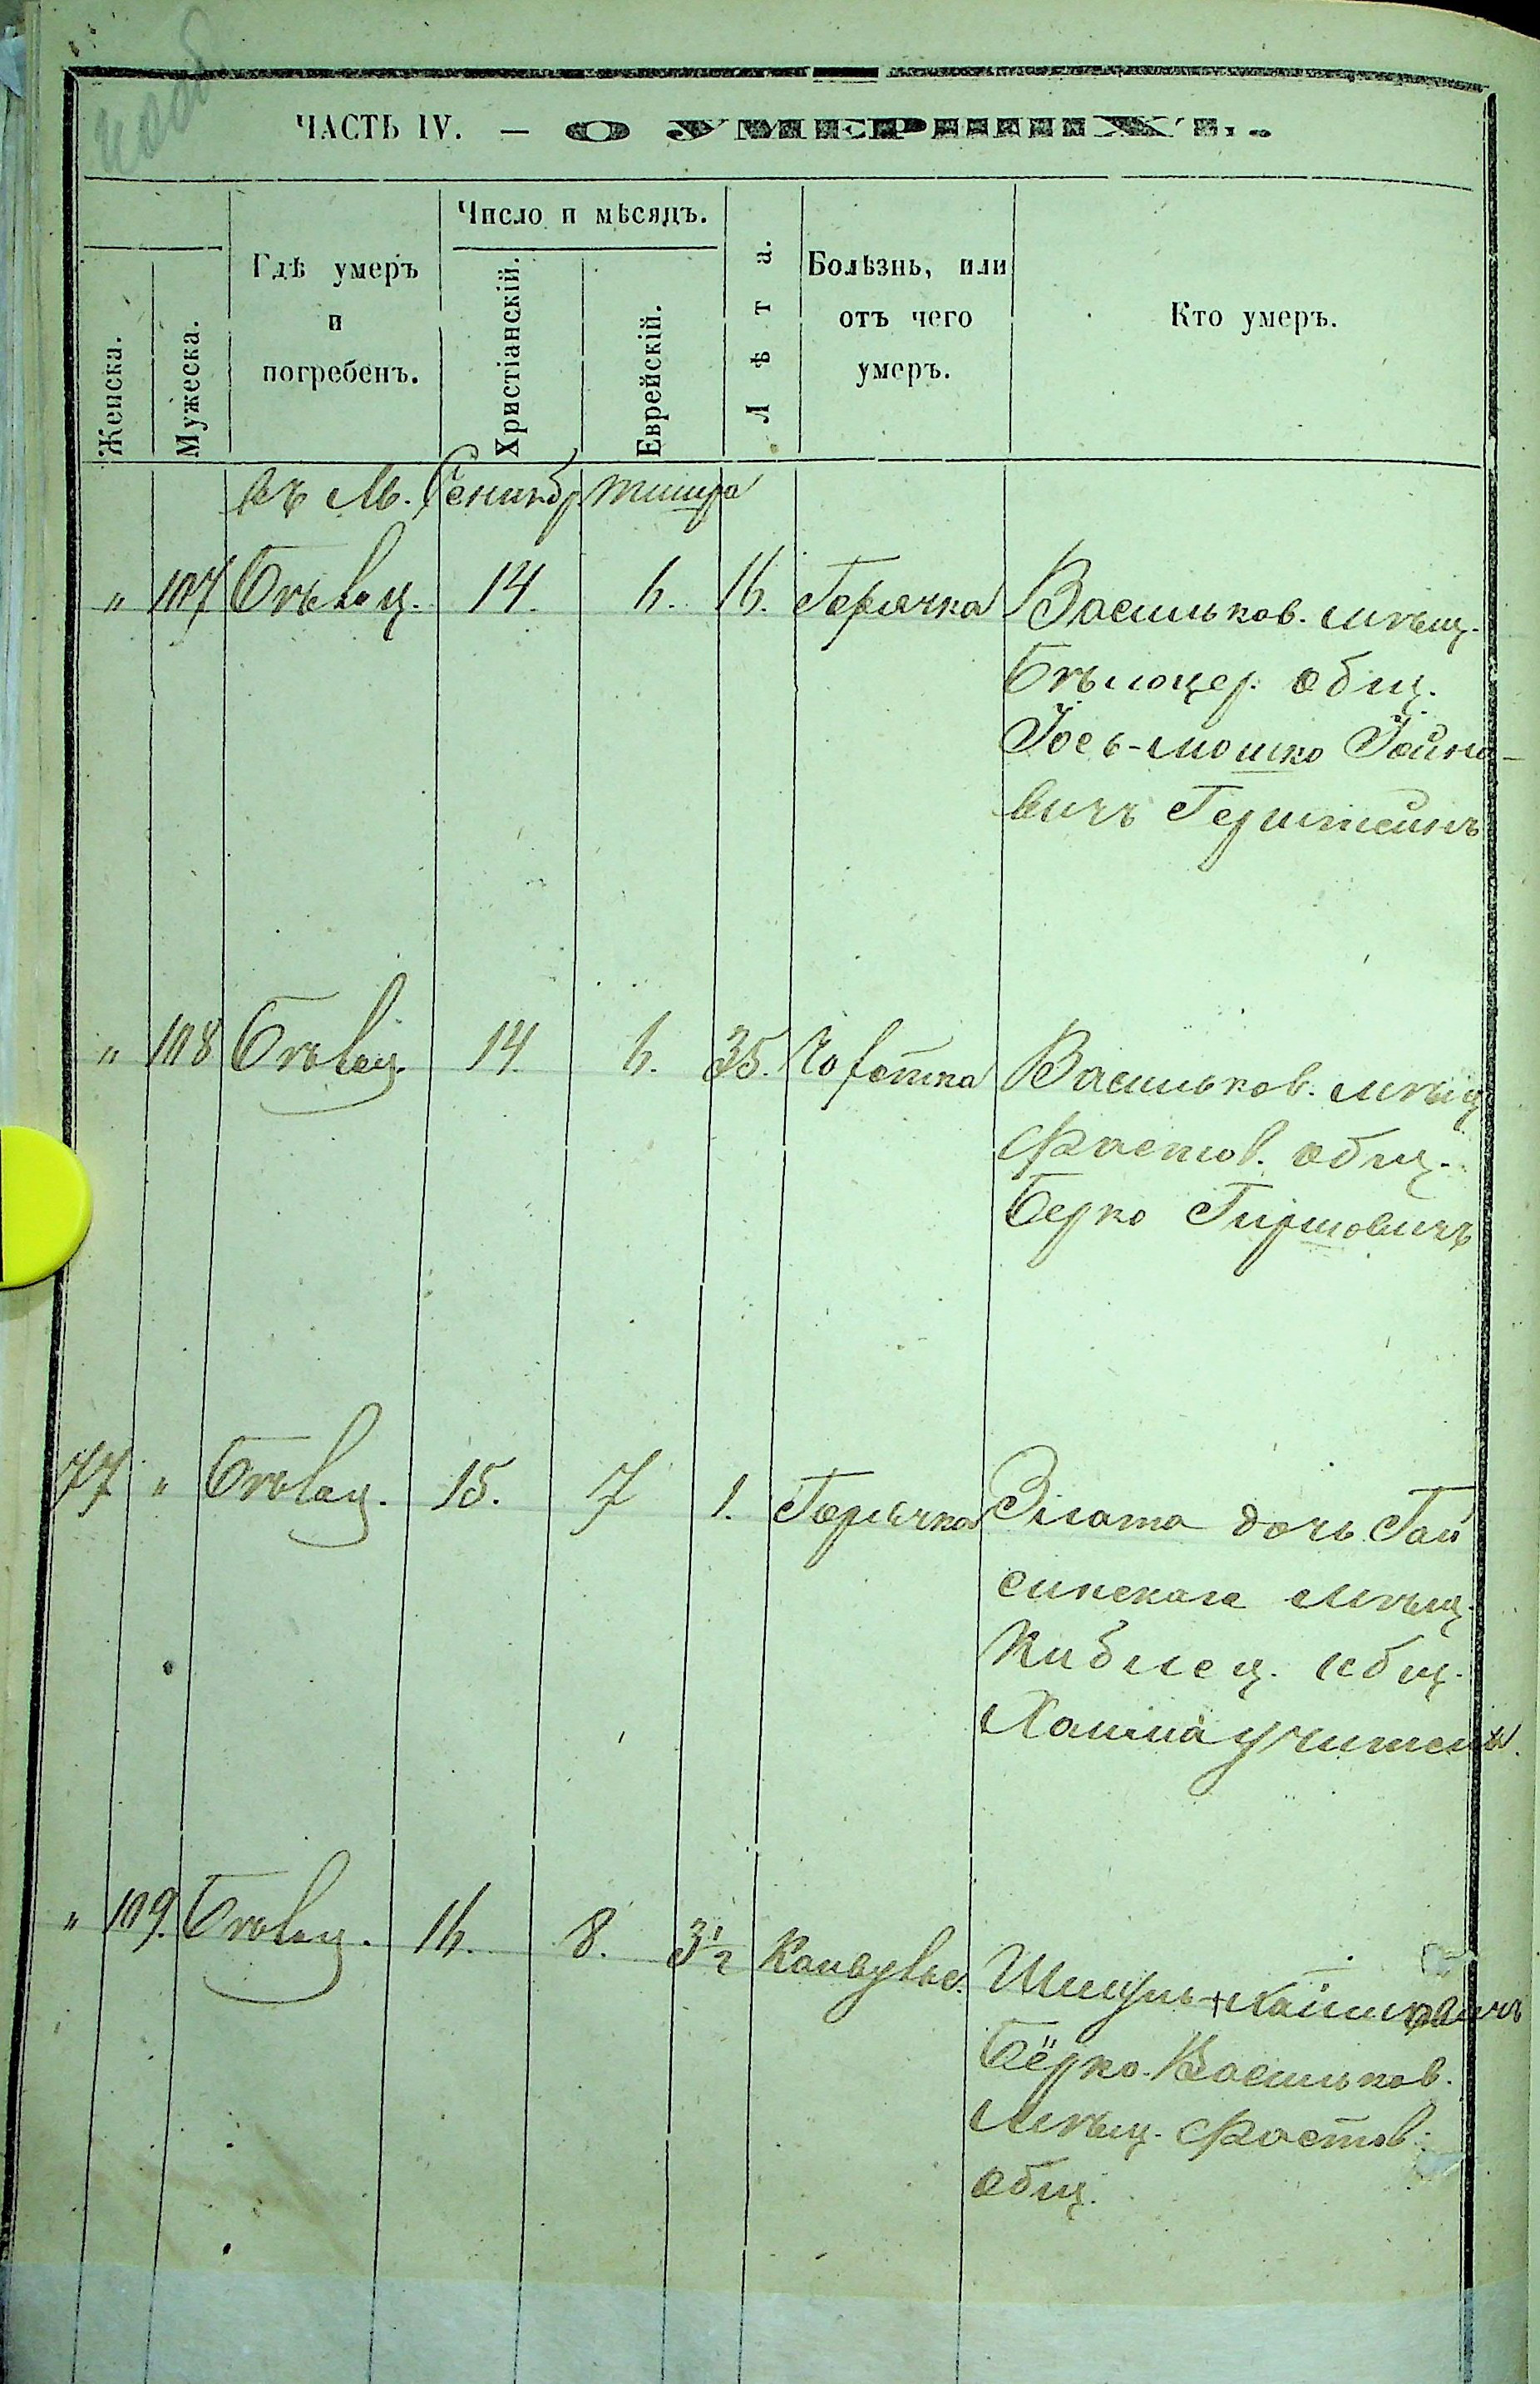 ЧАСТЬ IV. — О УМЕРШИХЪ.
Женска.
Мужеска.
Гдѣ умеръ
и
погребенъ.
Число и мѣсяцъ.
Христіанскій.
Еврейскій.
Лѣта.
Болѣзнь, или
отъ чего
умеръ.
Кто умеръ.
въ М. Сентябр Тишра
" 107 Бѣлоц. 14. 6. 16. Горячка Васильков. мѣщ.
Бѣлоцер. общ.
Іось-Мошко Іойно-
вичъ Герштейнъ
" 108 Бѣлоц. 14. 6. 35. Чахотка Васильков. мѣщ
Фастов. общ.
Берко Гиршовичъ
77 " Бѣлоц. 15. 7 1. Горячка Злата дочь Гай
синскаго мѣщ.
Кублец. общ.
Хаима Учитель.
" 109. Бѣлоц. 16. 8. 3½ Шмуль
Бёрко Васильков.
мѣщ. Фастов.
общ.